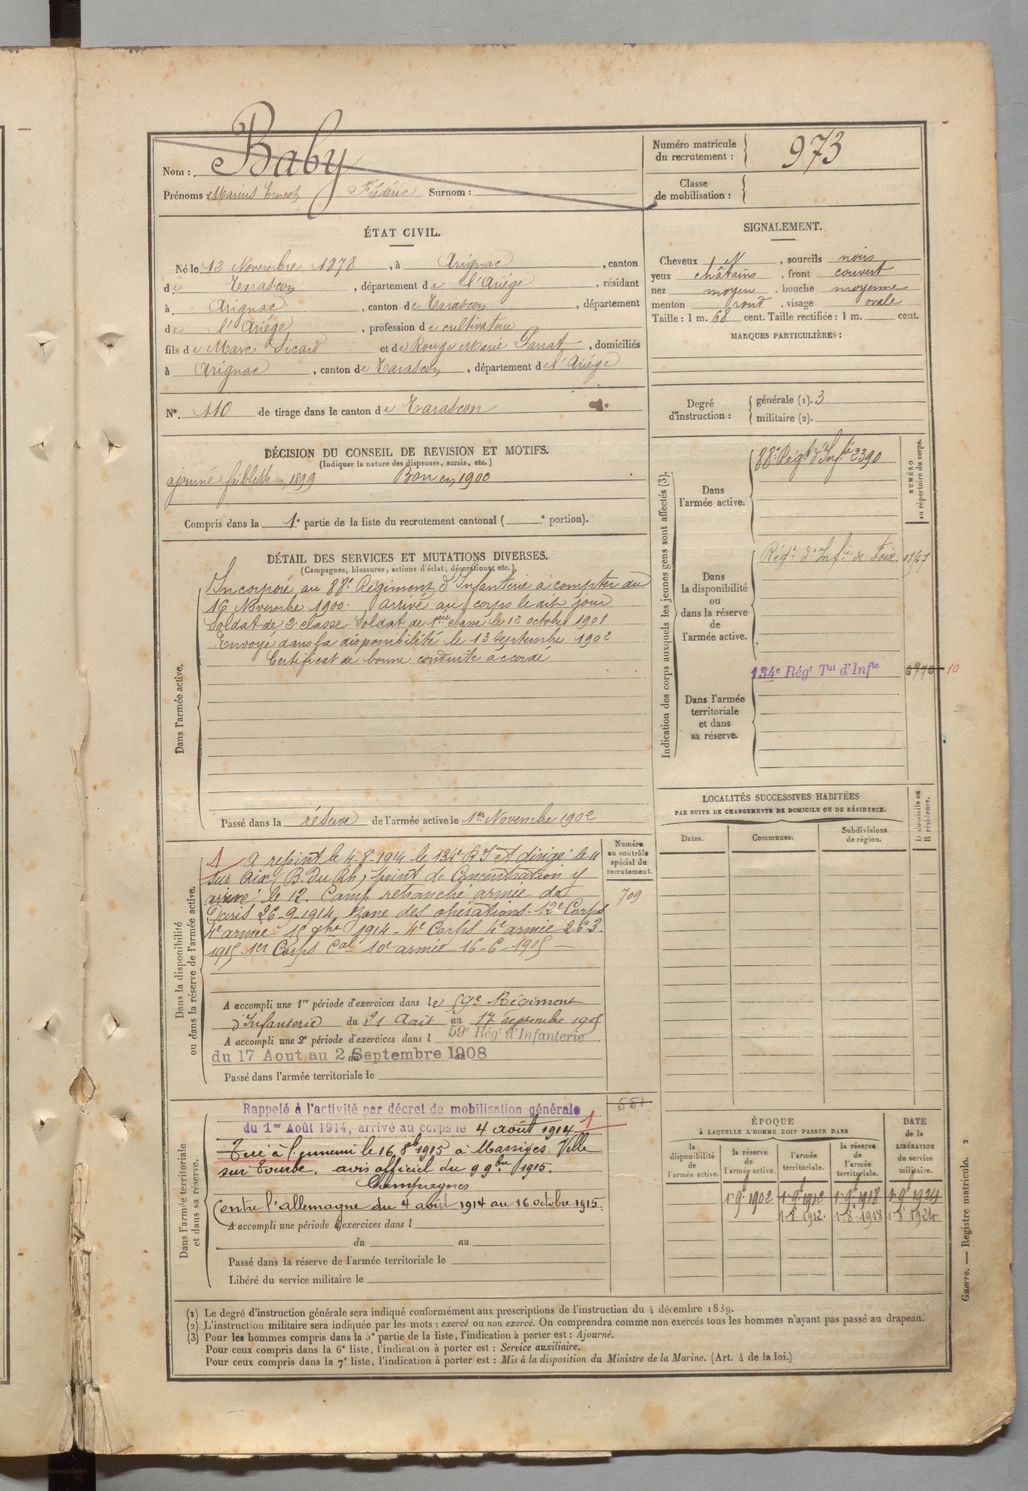 Nom : Baby
Prénoms : Marius Ernest Frédéric Surnom :
Numéro matricule
du recrutement : 973
Classe
de mobilisation :
ÉTAT CIVIL.
Né le 13 Novembre 1878, à Arignac, canton
de Tarascon, département de l'Ariége, résidant
à Arignac, canton de Tarascon, département
de l'Ariége, profession de cultivateur
fils de Marc Sicard et de Rouge Marie Parrat, domiciliés
à Arignac, canton de Tarascon, département de l'Ariége
N°. 110 de tirage dans le canton de Tarascon
SIGNALEMENT.
Cheveux N, sourcils noirs
yeux châtains, front couvert
nez moyen, bouche moyenne
menton rond, visage ovale
Taille : 1 m. 68 cent. Taille rectifiée : 1 m. cent.
MARQUES PARTICULIÈRES :
Degré
d'instruction :
générale (1). 3
militaire (2).
DÉCISION DU CONSEIL DE REVISION ET MOTIFS.
(Indiquer la nature des dispenses, sursis, etc.)
ajourné faiblesse en 1899 Bon en 1900
Compris dans la 1e partie de la liste du recrutement cantonal ( e portion).
DÉTAIL DES SERVICES ET MUTATIONS DIVERSES.
(Campagnes, blessures, actions d'éclat, décorations, etc.)
Dans l'armée active.
Incorporé au 88e Régiment d'Infanterie à compter du
16 Novembre 1900. arrivé au corps le dit jour
Soldat de 2e classe. Soldat de 1ère classe le 12 octobre 1901
Envoyé dans la disponibilité le 13 Septembre 1902
Certificat de bonne conduite accordé
Passé dans la réserve de l'armée active le 1er Novembre 1902
Indication des corps auxquels les jeunes gens sont affectés (3).
NUMÉRO
au répertoire du corps.
Dans
l'armée active.
88e Régt d'Infie 2390
Dans
la disponibilité
ou
dans la réserve
de
l'armée active.
Régt d'Infie de Foix.
Dans l'armée
territoriale
et dans
sa réserve.
134e Régt Tal d'Infie
10
LOCALITÉS SUCCESSIVES HABITÉES
PAR SUITE DE CHANGEMENTS DE DOMICILE OU DE RÉSIDENCE.
Dates.
Communes.
Subdivisions
de région.
D domicile ou
R résidence.
Numéro
au contrôle
spécial du
recrutement.
709
Dans la disponibilité
ou dans la réserve de l'armée active.
1 A rejoint le 4-8-1914 le 134e R.I et dirigé le 11
sur Aix (B. du Rh) point de concentration y
arrivé le 12. Camp retranché armée de
Paris 26-9-1914 Zone des opérations. 12e Corps
4e armée 15 9bre 1914 - 4e Corps 4e armée 26-3
1915 1er Corps Cal 10e armée 16-6-1915
A accompli une 1re période d'exercices dans le 59e Régiment
d'Infanterie du 21 Août au 17 septembre 1905
A accompli une 2e période d'exercices dans l 59e Rég' d'Infanterie
du 17 Aout au 2 Septembre 1908
Passé dans l'armée territoriale le
Dans l'armée territoriale
et dans sa réserve.
Rappelé à l'activité par décret de mobilisation générale
du 1er Août 1914, arrivé au corps le 4 août 1914 1
Tué à l'ennemi le 16 8bre 1915 à Massiges Ville
sur Tourbe. avis officiel du 9 9bre 1915.
Campagnes
entre l'allemagne du 4 août 1914 au 16 octobre 1915.
A accompli une période d'exercices dans l
du au
Passé dans la réserve de l'armée territoriale le
Libéré du service militaire le
ÉPOQUE
À LAQUELLE L'HOMME DOIT PASSER DANS
la
disponibilité
de
l'armée active.
la réserve
de
l'armée active.
l'armée
territoriale.
la réserve
de
l'armée
territoriale.
DATE
de la
LIBÉRATION
du service
militaire.
1-9bre 1902 1-9bre 1912 1-9bre 1918 1-9bre 1924
1-8bre 1912. 1-8bre 1918 1-8bre 1924
(1) Le degré d'instruction générale sera indiqué conformément aux prescriptions de l'instruction du 4 décembre 1889.
(2) L'instruction militaire sera indiquée par les mots : exercé ou non exercé. On comprendra comme non exercés tous les hommes n'ayant pas passé au drapeau.
(3) Pour les hommes compris dans la 5e partie de la liste, l'indication à porter est : Ajourné.
Pour ceux compris dans la 6e liste, l'indication à porter est : Service auxiliaire.
Pour ceux compris dans la 7e liste, l'indication à porter est : Mis à la disposition du Ministre de la Marine. (Art. 4 de la loi.)
Guerre. — Registre matricule. 2